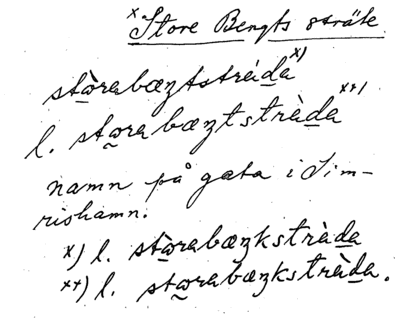 x Store Bengts sträte
stòrabæŋtstrȧ̀da x)
l. stọrabæŋtstràda xx)
namn på gata i Sim-
rishamn.
x) l. stòrabæŋkstràda
xx) l. stọrabæŋkstràda.